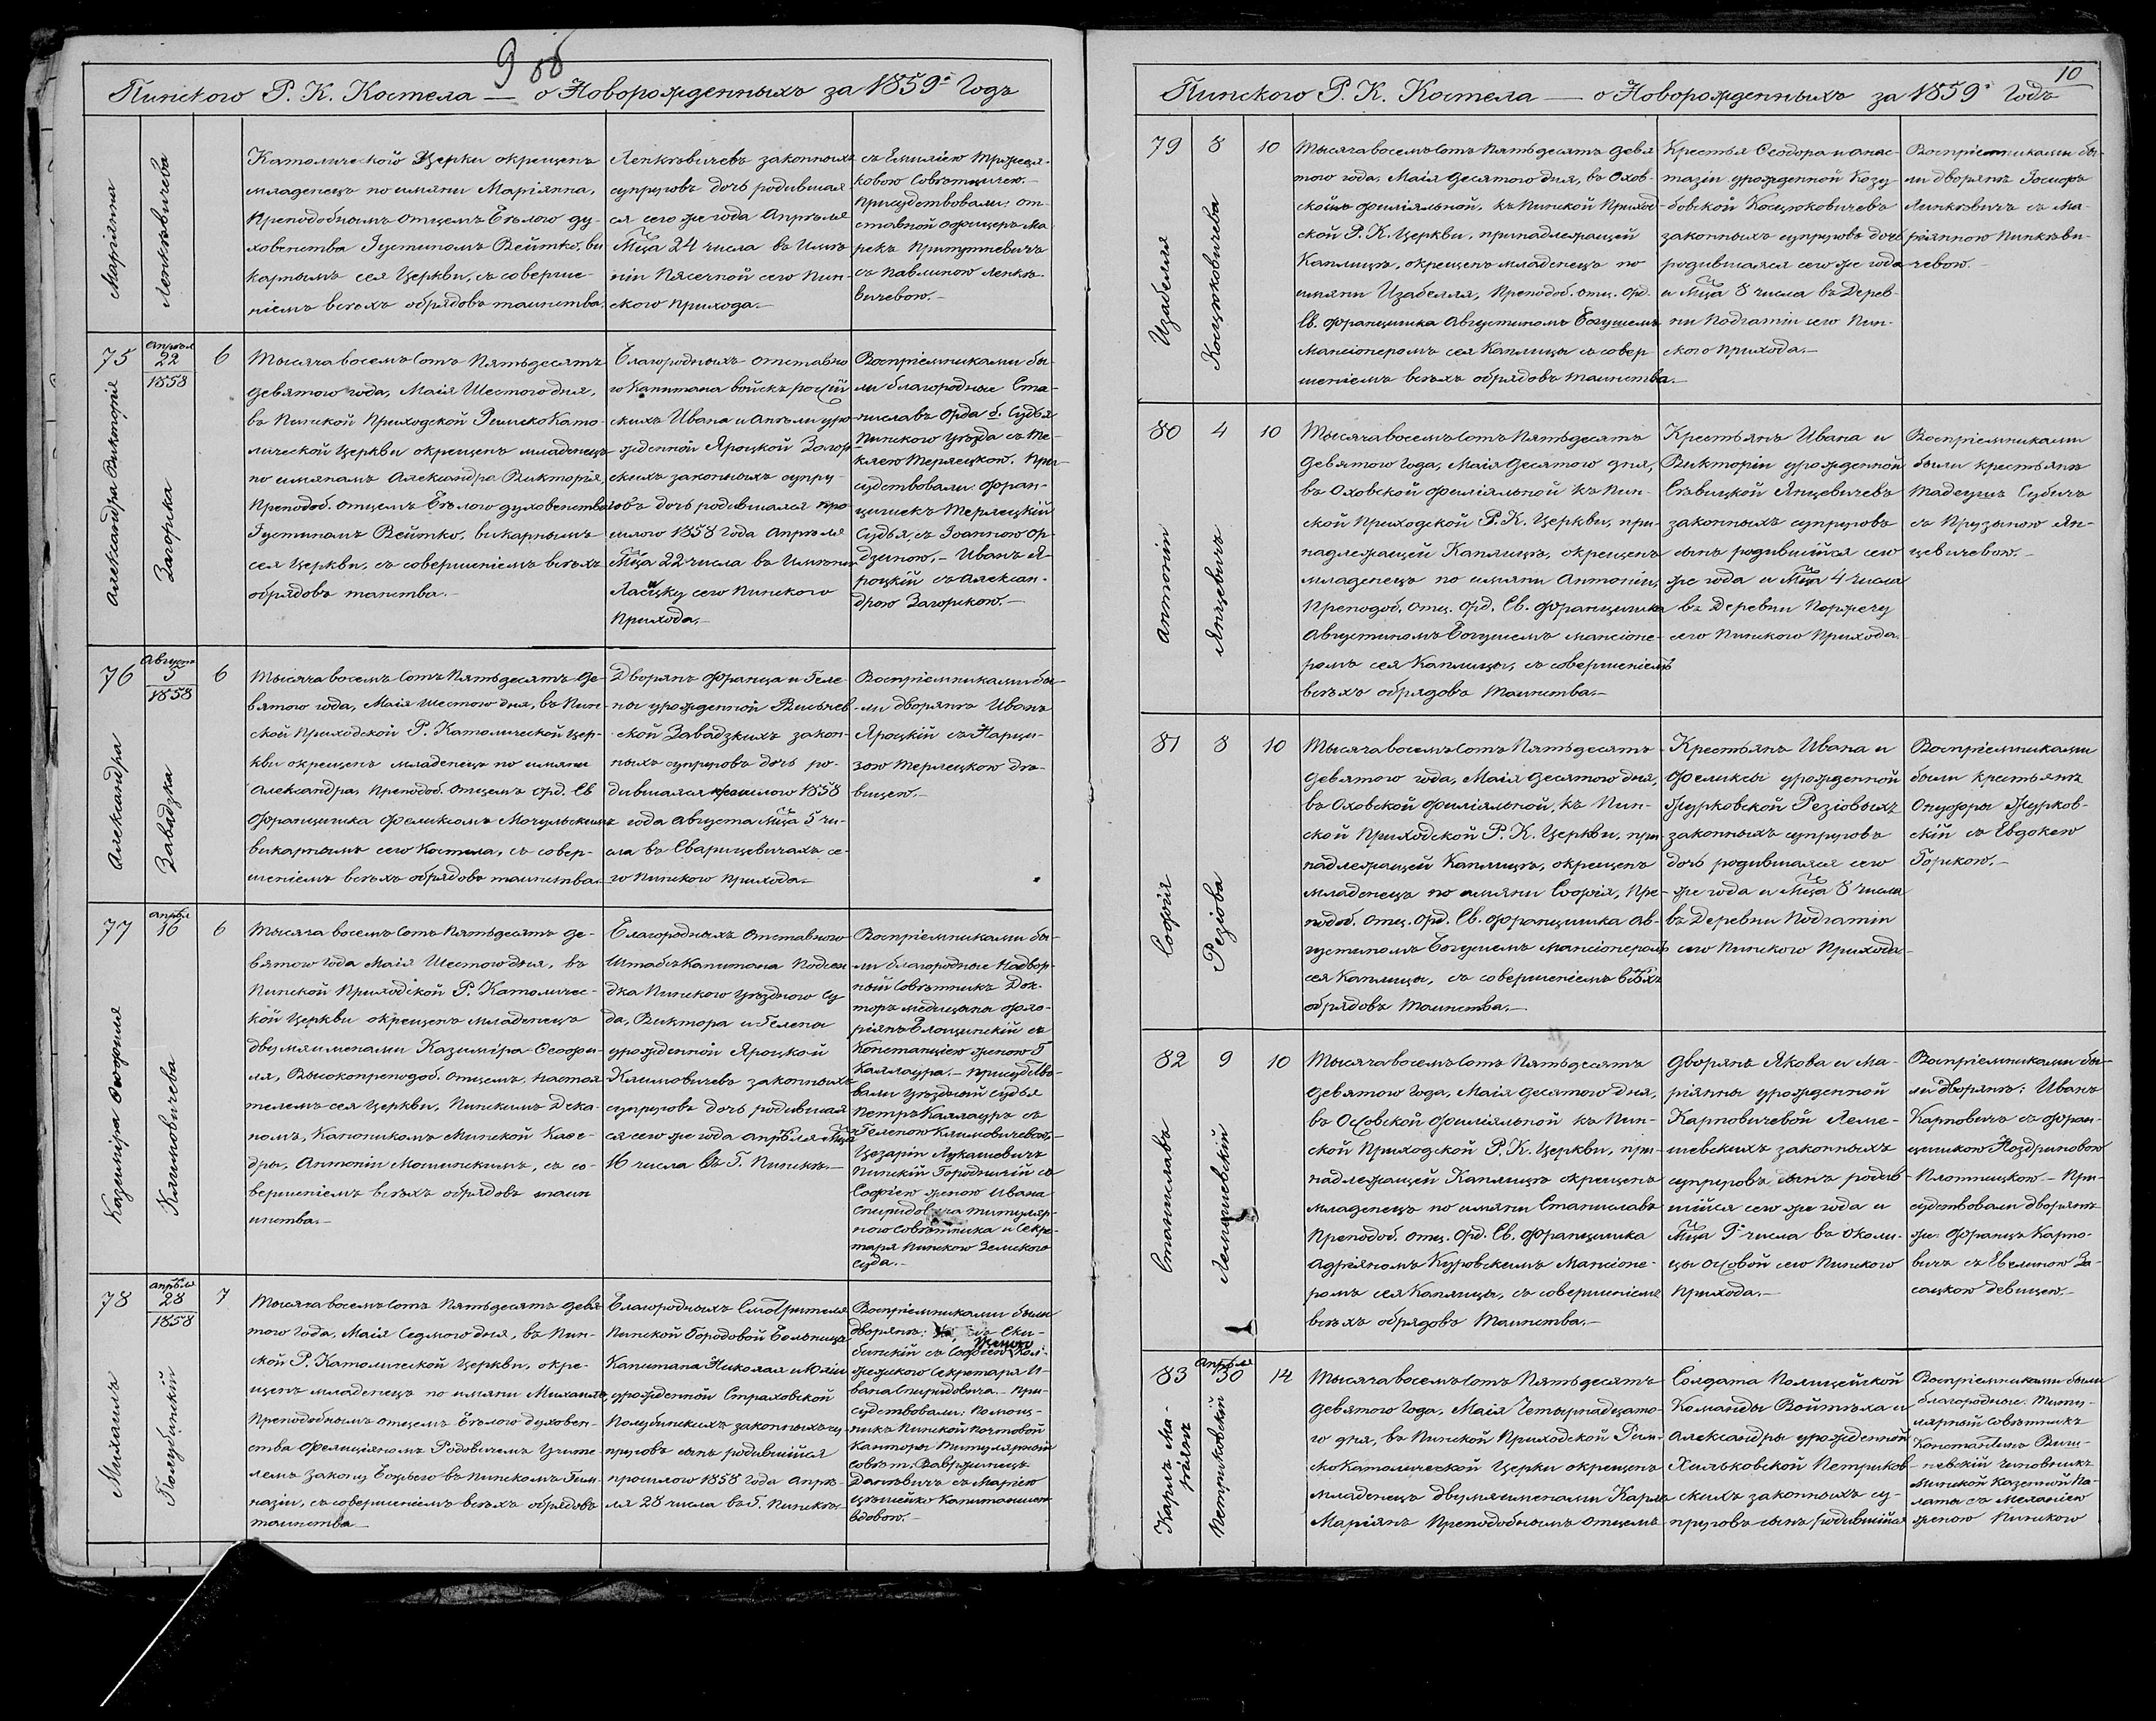 9 об
Пинского Р. К. Костела — о Новорожденныхъ за 1859й Годъ
Маріянна
Ленкѣвичева
Католической Церки окрещенъ
младенецъ по имяни Маріянна,
Преподобнымъ Отцемъ Бѣлого ду-
ховенства Іустиномъ Вейтко, ви
карнымъ сея Церкви, съ соверше-
ніемъ всѣхъ обрядовъ таинства.
Ленкѣвичевъ законныхъ
супруговъ дочь родившая
ся сего же года Апрѣля
Мца 24 числа въ Имѣ
ніи Пясечной сего Пин-
ского прихода.—
съ Емиліею
ковою Совѣтницею.—
Присудствовали: от-
ставной офицеръ Ма
рекъ
съ Павлиною Ленкѣ-
вичевою.—
75
Апрѣля
22
1858
6
Александра Викторія
Загорска
Тысяча восемъ Сотъ Пятьдесятъ
девятого года, Маія Шестого дня,
въ Пинской Приходской Римско Като
лической Церкви окрещенъ младенецъ
по имянамъ Александра Викторія,
Преподоб. Отцемъ Бѣлого духовенства
Іустиномъ Вейтко, викарнымъ
сея Церкви, съ совершеніемъ всѣхъ
обрядовъ таинства.—
Благородныхъ отставно
го Капитана войскъ россій
скихъ Ивана и Анѣли уро
жденной Яроцкой Загор
скихъ законныхъ супру-
говъ дочь родившаяся про
шлого 1858 года Апрѣля
Мца 22 числа въ Имѣніи
Ласіцку сего Пинского
Прихода.—
Воспріемниками бы-
ли благородные Ста-
ниславъ Орда б. Судья
Пинского Уѣзда съ Те-
клею Терлецкою. При-
судствовали: Фран-
цишекъ Терлецкій
Судья, съ Іоанною Ор-
дзиною,— Иванъ Я-
роцкій съ Алексан-
дрою Загорскою.—
76
Августа
5
1858
6
Александра
Завадзка
Тысяча восемъ Сотъ Пятьдесятъ Де-
вятого года, Маія шестого дня, въ Пин-
ской Приходской Р. Католической Цер-
кви окрещенъ младенецъ по имяни
Александра, Преподоб. Отцемъ Орд. Св
Францишка Феликсомъ Могульскимъ
викарнымъ сего Костела, съ совер-
шеніемъ всѣхъ обрядовъ таинства.—
Дворянъ Франца и Геле-
ны урожденной
ской Завадзкихъ закон-
ныхъ супруговъ дочь ро-
дившаяся прошлого 1858
года Августа Мца 5 чи-
сла въ Сварицевичахъ се-
го Пинского Прихода.—
Воспріемниками бы-
ли дворянъ Иванъ
Яроцкій съ Нарци-
зою Терлецкою дѣ-
вицею.—
77
Апрѣл
16
6
Казиміра Теофиля
Климовичева
Тысяча восемъ Сотъ Пятьдесятъ де-
вятого Года Маія Шестого дня, въ
Пинской Приходской Р. Католичес-
кой Церкви окрещенъ младенецъ
двумя именами Казиміра-Теофи-
ля, Высокопреподоб. Отцемъ, настоя
телемъ сея Церкви, Пинскимъ Дека-
номъ, Каноникомъ Минской Кафе-
дры, Антоніи Мошинскимъ, съ со-
вершеніемъ всѣхъ обрядовъ таин
инства.—
Благородныхъ Отставного
Штабъ Капитана Подсѣ
дка Пинского Уѣздного Су
да, Виктора и Гелены
урожденной Яроцкой
Климовичевъ законныхъ
супруговъ дочь родившая
ся сего же года Апрѣля Мца
16 числа въ Г. Пинскѣ.—
Воспріемниками бы-
ли благородные Надвор-
ный Совѣтникъ Док-
торъ медицины Фло-
ріянъ съ
Констанціею женою Г
Каллаура.— Присудство-
вали уѣздный судья
Петръ Каллауръ съ
Геленою Климовичевою,—
Цезарій Лукашевичъ
Пинскій Городничій съ
Софіею женою Ивана
Спиридовича титуляр-
ного Совѣтника и Секре-
таря Пинского Земского
Суда.—
78
Апрѣля
28
1858
7
Михаилъ
Полубинскій
Тысяча восемъ Сотъ Пятьдесятъ девя
того Года, Маія Седмого дня, въ Пин-
ской Р. Католической Церкви, окре-
щенъ младенецъ по имяни Михаилъ
Преподобнымъ Отцемъ Бѣлого духовен-
ства Фелиціяномъ Родовичемъ Учите
лемъ Закону Божьего въ Пинскомъ Гим-
назіи, съ совершеніемъ всѣхъ обрядовъ
таинства—
Благородныхъ Смотрителя
Пинской Городовой Больницы
Капитана Николая и Юліи
урожденной Страховской
Полубинскихъ законныхъ су
пруговъ сынъ родившійся
прошлого 1858 года Апрѣ-
ля 28 числа въ Г. Пинскѣ—
Воспріемниками были
дворянъ: Ски-
бинскій съ Софіею женою Кол-
лежского Секретаря И-
вана Спиридовича.— При-
судствовали: Помощ-
никъ Пинской почтовой
Канторы Титулярный
совѣт. Вавржинецъ
съ Маріею
Капитаншею
вдовою.—
10
Пинского Р. К. Костела — о Новорожденныхъ за 1859й Годъ
79
8
10
Изабелля
Косцюковичева
Тысяча восемъ Сотъ Пятьдесятъ девя
того года, Маія десятого дня, въ Охов-
ской филіяльной, къ Пинской Приход
ской Р. К. Церкви, принадлежащей
Каплицѣ, окрещенъ младенецъ по
имяни Изабелля, Преподоб. Отц. Орд.
Св. Францишка Августиномъ Богушемъ
Мансіонеромъ сея Каплицы съ совер
шеніемъ всѣхъ обрядовъ таинства.—
Крестья Ѳеодора и Анас-
тазіи урожденной Козу
бовской Косцюковичевъ
законныхъ супруговъ дочь
родившаяся сего же года
и Мца 8 числа въ Дерев-
ни Подгатіи сего Пин-
ского прихода.—
Воспріемниками бы-
ли дворянъ Іосифъ
Линкѣвичъ съ Ма-
ріянною Пинкѣви-
чевою.—
80
4
10
Антоніи
Янцевичъ
Тысяча восемъ Сотъ Пятьдесятъ
девятого Года, Маія десятого дня,
въ Оховской филіяльной къ Пин-
ской Приходской Р. К. Церкви, при-
надлежащей Каплицѣ, окрещенъ
младенецъ по имяни Антоніи,
Преподоб. Отц. Орд. Св. Францишка
Августиномъ Богушемъ Мансіоне-
ромъ сея Каплицы, съ совершеніемъ
всѣхъ обрядовъ Таинства.—
Крестьянъ Ивана и
Викторіи урожденной
Сѣвицкой Янцевичевъ
законныхъ супруговъ
сынъ родившійся сего
же года и Мца 4 числа
въ Деревни Поржечу
сего Пинского Прихода.
Воспріемниками
были крестьянъ
Тадеушъ Субичъ
съ Прузыною Ян-
цевичевою.—
81
8
10
Софія
Резіова
Тысяча восемъ Сотъ Пятьдесятъ
девятого года, Маія десятого дня,
въ Оховской филіяльной, къ Пин-
ской Приходской Р. К. Церкви, при
надлежащей Каплицѣ, окрещенъ
младенецъ по имяни Софія, Пре-
подоб. Отц. Орд. Св. Францишка Ав-
густиномъ Богушемъ Мансіонеромъ
сея Каплицы, съ совершеніемъ всѣхъ
обрядовъ Таинства.—
Крестьянъ Ивана и
Феликсы урожденной
Журковской Резіовыхъ
законныхъ супруговъ
дочь родившаяся сего
же года и Мца 8 числа
въ Деревни Подгатіи
сего Пинского Прихода
Воспріемниками
были крестьянъ
Онуфры Журков-
скій съ Евдокею
Горскою.—
82
9
10
Станиславъ
Лемешевскій
Тысяча восемъ Сотъ Пятьдесятъ
девятого Года, Маія десятого дня,
въ Осовской Филіяльной къ Пин-
ской Приходской Р. К. Церкви, при-
надлежащей Каплицѣ окрещенъ
младенецъ по имяни Станиславъ
Преподоб. Отц. Орд. Св. Францишка
Адріяномъ Куровскимъ Мансіоне-
ромъ сея Каплицы, съ совершеніемъ
всѣхъ обрядовъ Таинства.—
Дворянъ Якова и Ма-
ріянны урожденной
Карповичевой Леме-
шевскихъ законныхъ
супруговъ сынъ родив-
шійся сего же года и
Мца 9 числа въ Околи-
цы Осовой сего Пинского
Прихода.—
Воспріемниками бы-
ли дворянъ: Иванъ
Карповичъ съ Фран-
цишкою Ноздриновою
Плотницкою.— При-
судствовали дворянъ
же. Францъ Карпо-
вичъ съ Евелиною За-
сацкою девицею.—
83
Апрѣля
30
14
Карлъ Ма-
ріянъ
Петриковскій
Тысяча восемъ Сотъ Пятьдесятъ
девятого Года, Маія Четырнадцато
го дня, въ Пинской Приходской Рим-
ско Католической Церки окрещенъ
младенецъ двумя именами Карлъ
Маріянъ Преподобнымъ Отцемъ
Солдата Полицейской
Команды Войтѣха и
Александры урожденной
Хильковской Петриков-
скихъ законныхъ су-
пруговъ сынъ, родившійся
Воспріемниками были
благородные: Титу-
лярный Совѣтникъ
Константинъ Виш-
невскій Чиновникъ
Минской Казенной Па-
латы съ Меланіею
женою Пинского